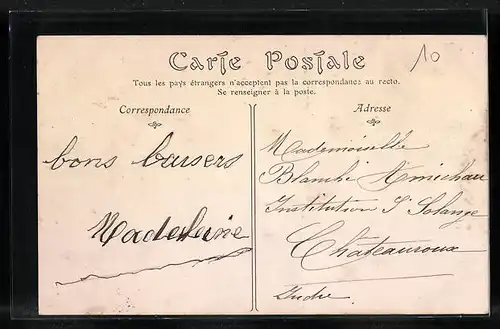 Carte Postale
10
Tous les pays étrangers n'acceptent pas la correspondance au recto.
Se renseigner à la poste.
Correspondance
bons baisers
Madeleine
Adresse
Mademoiselle
Blanche
Institution St Solange
Châteauroux
Indre